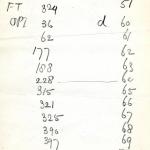 FT 324 51
OPI 36 d 60
62 61
177 62
188 63
228 — 6c
315 65
321 66
325 67
390 68
397 69